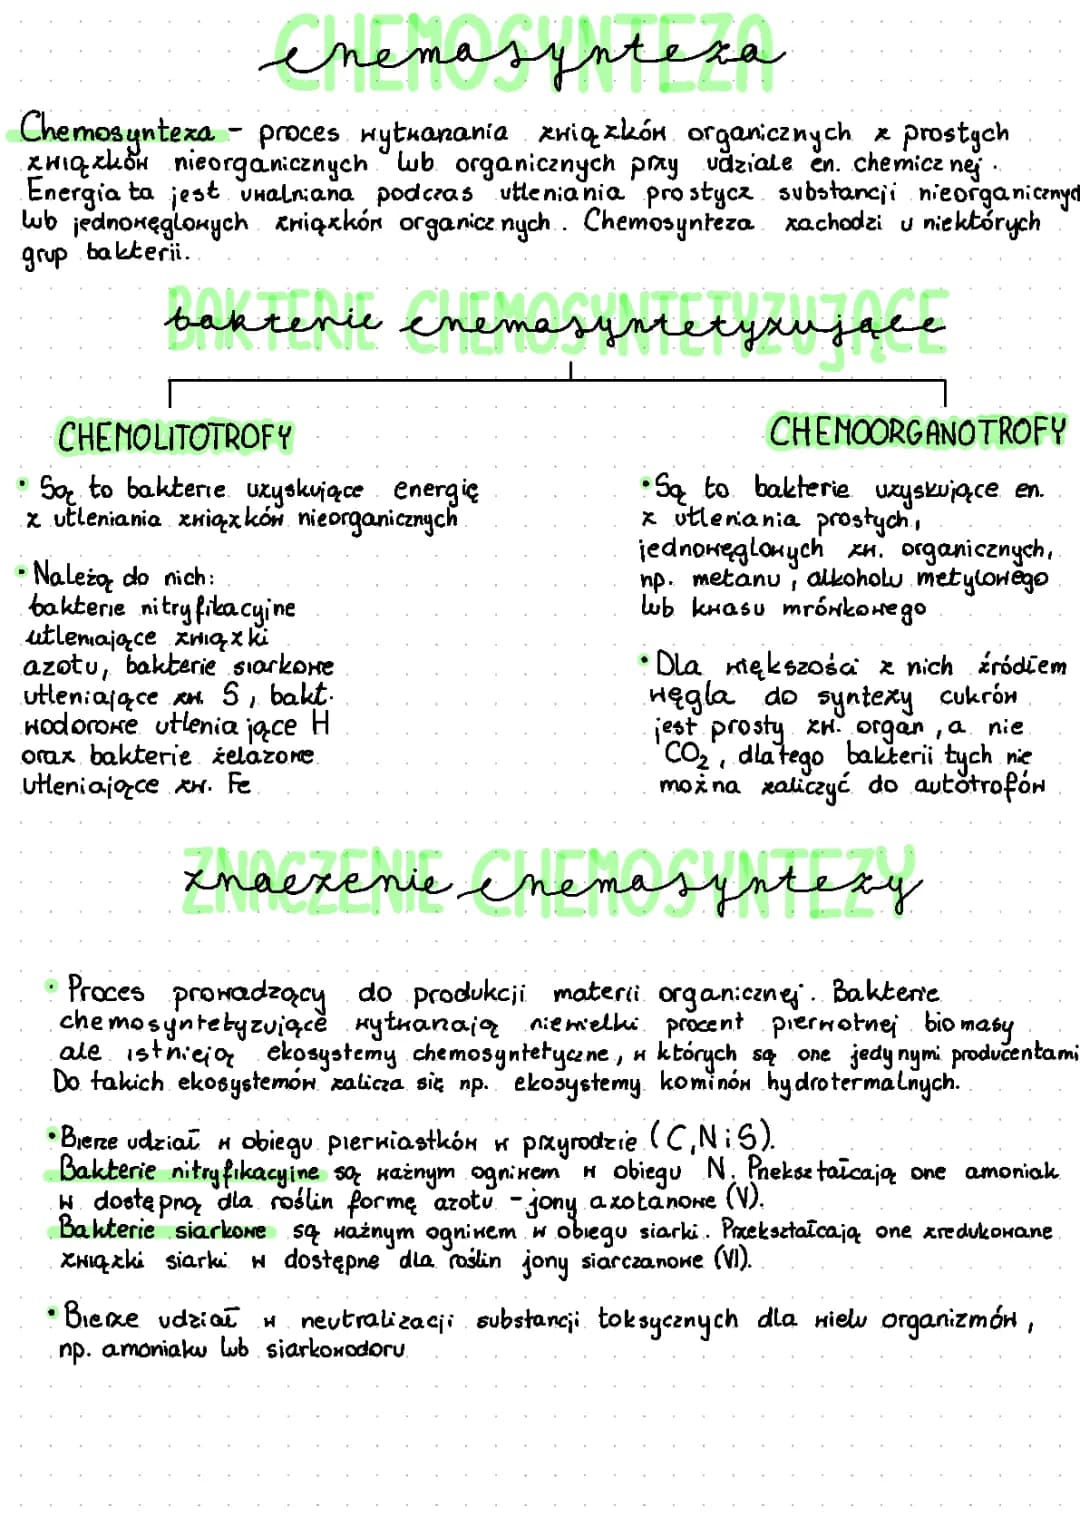 chemosynteza
Chemosynteza - proces wytwarzania związków organicznych z prostych
związków nieorganicznych lub organicznych przy udziale en. chemicznej.
Energia ta jest uwalniana podczas utleniania prostycz substancji nieorganicznyc
lub jednowęglowych związków organicznych. Chemosynteza zachodzi u niektórych
grup bakterii.
bakterie chemosyntetyzujące
CHEMOLITOTROFY
• Są to bakterie uzyskujące energię
z utleniania związków nieorganicznych
• Należą do nich:
bakterie nitryfikacyjne
utleniające związki
azotu, bakterie siarkowe
utleniające zw. S, bakt.
wodorowe utleniające H
oraz bakterie żelazowe
utleniające zw. Fe
CHEMOORGANOTROFY
• Są to bakterie uzyskujące en.
z utleniania prostych,
jednowęglowych zw. organicznych,
np. metanu, alkoholu metylowego
lub kwasu mrówkowego
• Dla większości z nich źródłem
węgla do syntezy cukrów
jest prosty zw. organ, a nie
CO₂, dlatego bakterii tych nie
można zaliczyć do autotrofów
znaczenie chemosyntezy
• Proces prowadzący do produkcji materii organicznej. Bakterie
chemosyntetyzujące wytwarzają niewielki procent pierwotnej biomasy
ale istnieją ekosystemy chemosyntetyczne, w których są one jedynymi producentami
Do takich ekosystemów zalicza się np. ekosystemy kominów hydrotermalnych.
• Bierze udział w obiegu pierwiastków w przyrodzie (C, N i S).
Bakterie nitryfikacyjne są ważnym ogniwem w obiegu N. Przekształcają one amoniak
w dostępną dla roślin formę azotu - jony azotanowe (V).
Bakterie siarkowe są ważnym ogniwem w obiegu siarki. Przekształcają one zredukowane
związki siarki w dostępne dla roślin jony siarczanowe (VI).
• Bierze udział w neutralizacji substancji toksycznych dla wielu organizmów,
np. amoniaku lub siarkowodoru